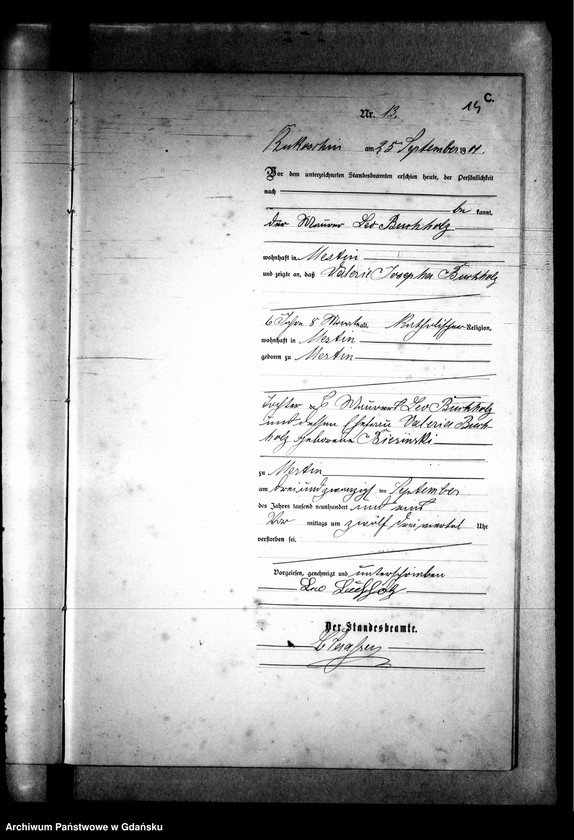 C.
14
Nr. 13.
Rukoschin am 25 September 1901.
Vor dem unterzeichneten Standesbeamten erschien heute, der Persönlichkeit
nach
be kannt,
der Maurer Leo Buchholz
wohnhaft in Mestin
und zeigte an, daß Valerie Josepha Buchholz
6 Jahre 8 Monate alt, katholischer Religion,
wohnhaft in Mestin
geboren zu Mestin
Tochter des Maurers Leo Buchholz
und dessen Ehefrau Valeria Buch
holz geborene
zu Mestin
am dreiundzwanzigsten September
des Jahres tausend neunhundert und eins
Vor mittags um zwölf dreiviertel Uhr
verstorben sei.
Vorgelesen, genehmigt und unterschrieben
Leo Buchholz
Der Standesbeamte.
Archiwum Państwowe w Gdańsku